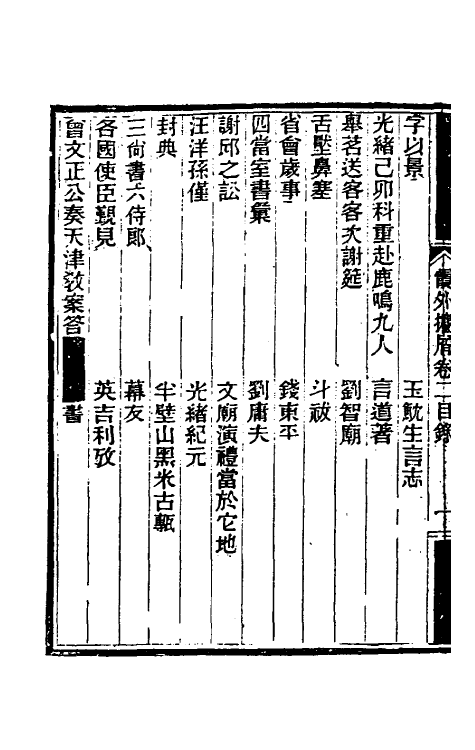 霞外攟屑卷二目錄　一
字以景　玉魫生言志
光緒己卯科重赴鹿鳴九人　言道著
舉茗送客客次謝筵　劉智廟
舌墼鼻塞　斗祓
省會歲事　錢東平
四當室書彙　劉庸夫
謝邱之訟　文廟演禮當於它地
汪洋孫僅　光緒紀元
封典　半壁山黑米古甎
三尚書六侍郎　幕友
各國使臣覲見　英吉利攷
曾文正公奏天津敎案答　書